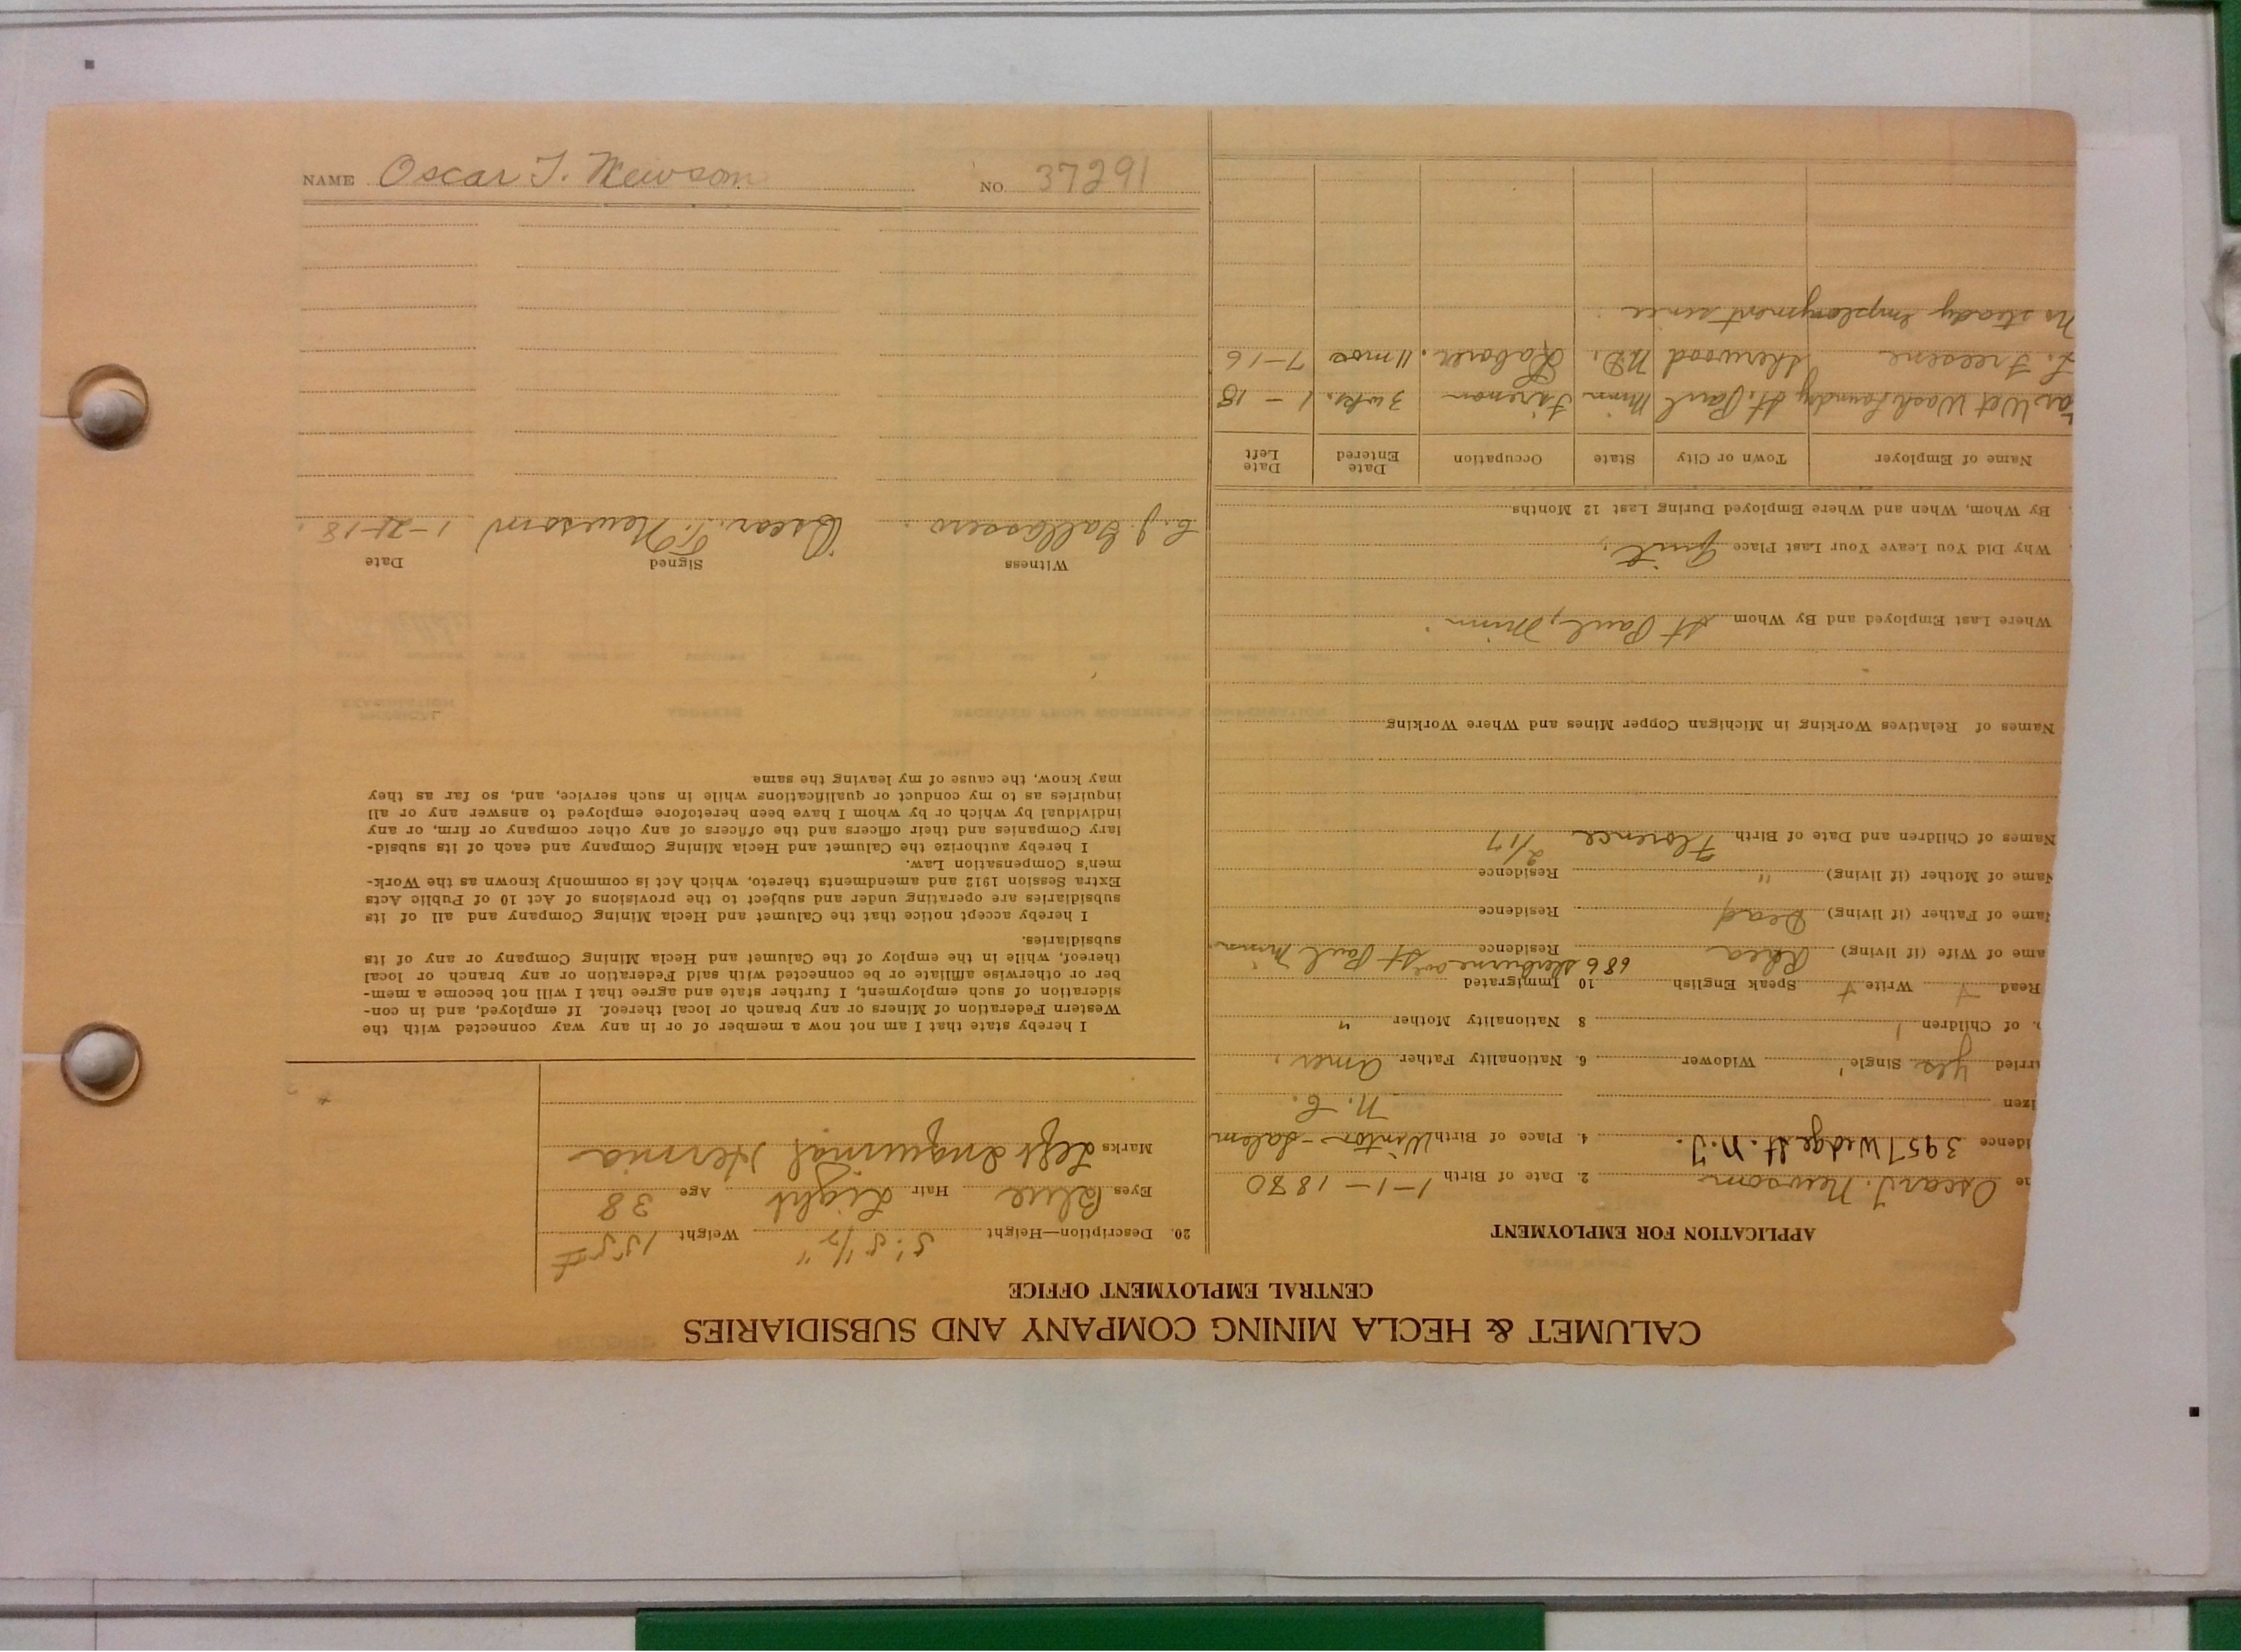 NAME Oscar T. Newsom NO. 37291
CALUMET & HECLA MINING COMPANY AND SUBSIDIARIES
CENTRAL EMPLOYMENT OFFICE
APPLICATION FOR EMPLOYMENT
me Oscar T. Newsom 2. Date of Birth 1-1-1880
idence 3957 Wedge St. N.J. 4. Place of Birth Winton-Salem
izen N.C.
rried Yes Single Widower 6. Nationality Father Amer.
o. of Children 1 8 Nationality Mother "
Read + Write + Speak English 10 Immigrated
ame of Wife (if living) Rhea Residence 686 Sherburne ave St Paul Minn.
Name of Father (if living) Dead Residence
Name of Mother (if living) " Residence
Names of Children and Date of Birth Florence 2/17
Names of Relatives Working in Michigan Copper Mines and Where Working
Where Last Employed and By Whom St Paul, Minn.
Why Did You Leave Your Last Place Quit
By Whom, When and Where Employed During Last 12 Months
Name of Employer Town or City State Occupation Date Entered Date Left
Wet Wash Laundry St. Paul Minn Fireman 3 wks. 1-18
L. Freesene Sherwood N.D. Laborer. 11 mos 7-16
No steady employment since.
20. Description—Height 5' 5 1/2" Weight 155#
Eyes Blue Hair Light Age 38
Marks Left Inguinal Hernia
I hereby state that I am not now a member of or in any way connected with the
Western Federation of Miners or any branch or local thereof. If employed, and in con-
sideration of such employment, I further state and agree that I will not become a mem-
ber or otherwise affiliate or be connected with said Federation or any branch or local
thereof, while in the employ of the Calumet and Hecla Mining Company or any of its
subsidiaries.
I hereby accept notice that the Calumet and Hecla Mining Company and all of its
subsidiaries are operating under and subject to the provisions of Act 10 of Public Acts
Extra Session 1912 and amendments thereto, which Act is commonly known as the Work-
men's Compensation Law.
I hereby authorize the Calumet and Hecla Mining Company and each of its subsid-
iary Companies and their officers and the officers of any other company or firm, or any
individual by which or by whom I have been heretofore employed to answer any or all
inquiries as to my conduct or qualifications while in such service, and, so far as they
may know, the cause of my leaving the same
Witness Signed Date
Oscar. T. Newsom 1-21-18.